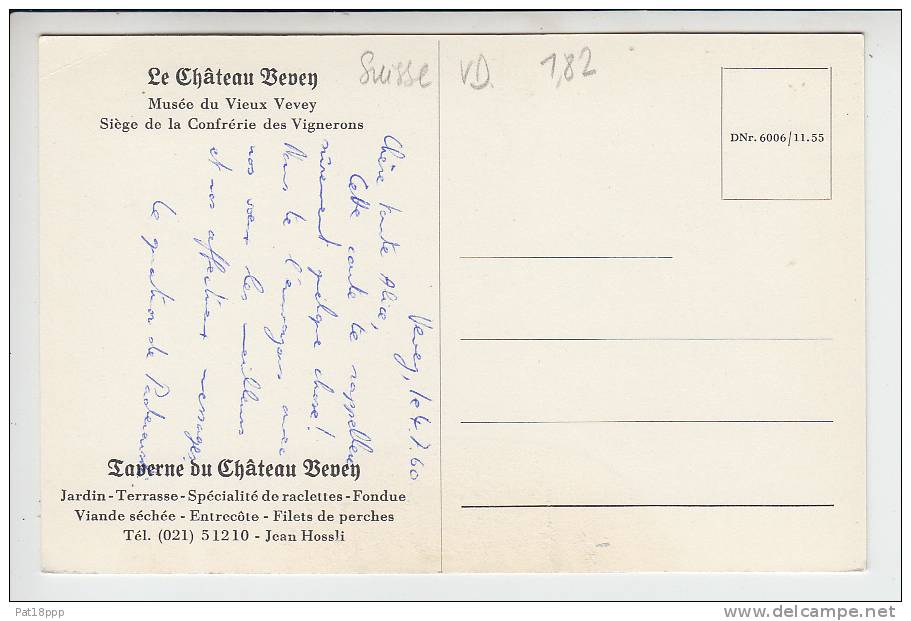 Le Château Vevey
Musée du Vieux Vevey
Siège de la Confrérie des Vignerons
Suisse VD. 1,82
DNr. 6006/11.55
Vevey, le 4.7.60
Chère tante Alice,
Cette carte te rappellera
sûrement quelque chose!
Nous te l'envoyons avec
nos vœux les meilleurs
et nos affectueux messages.
Le quatuor de
Taverne du Château Vevey
Jardin - Terrasse - Spécialité de raclettes - Fondue
Viande séchée - Entrecôte - Filets de perches
Tél. (021) 51210 - Jean Hossli
Pat18ppp
delcampe.net